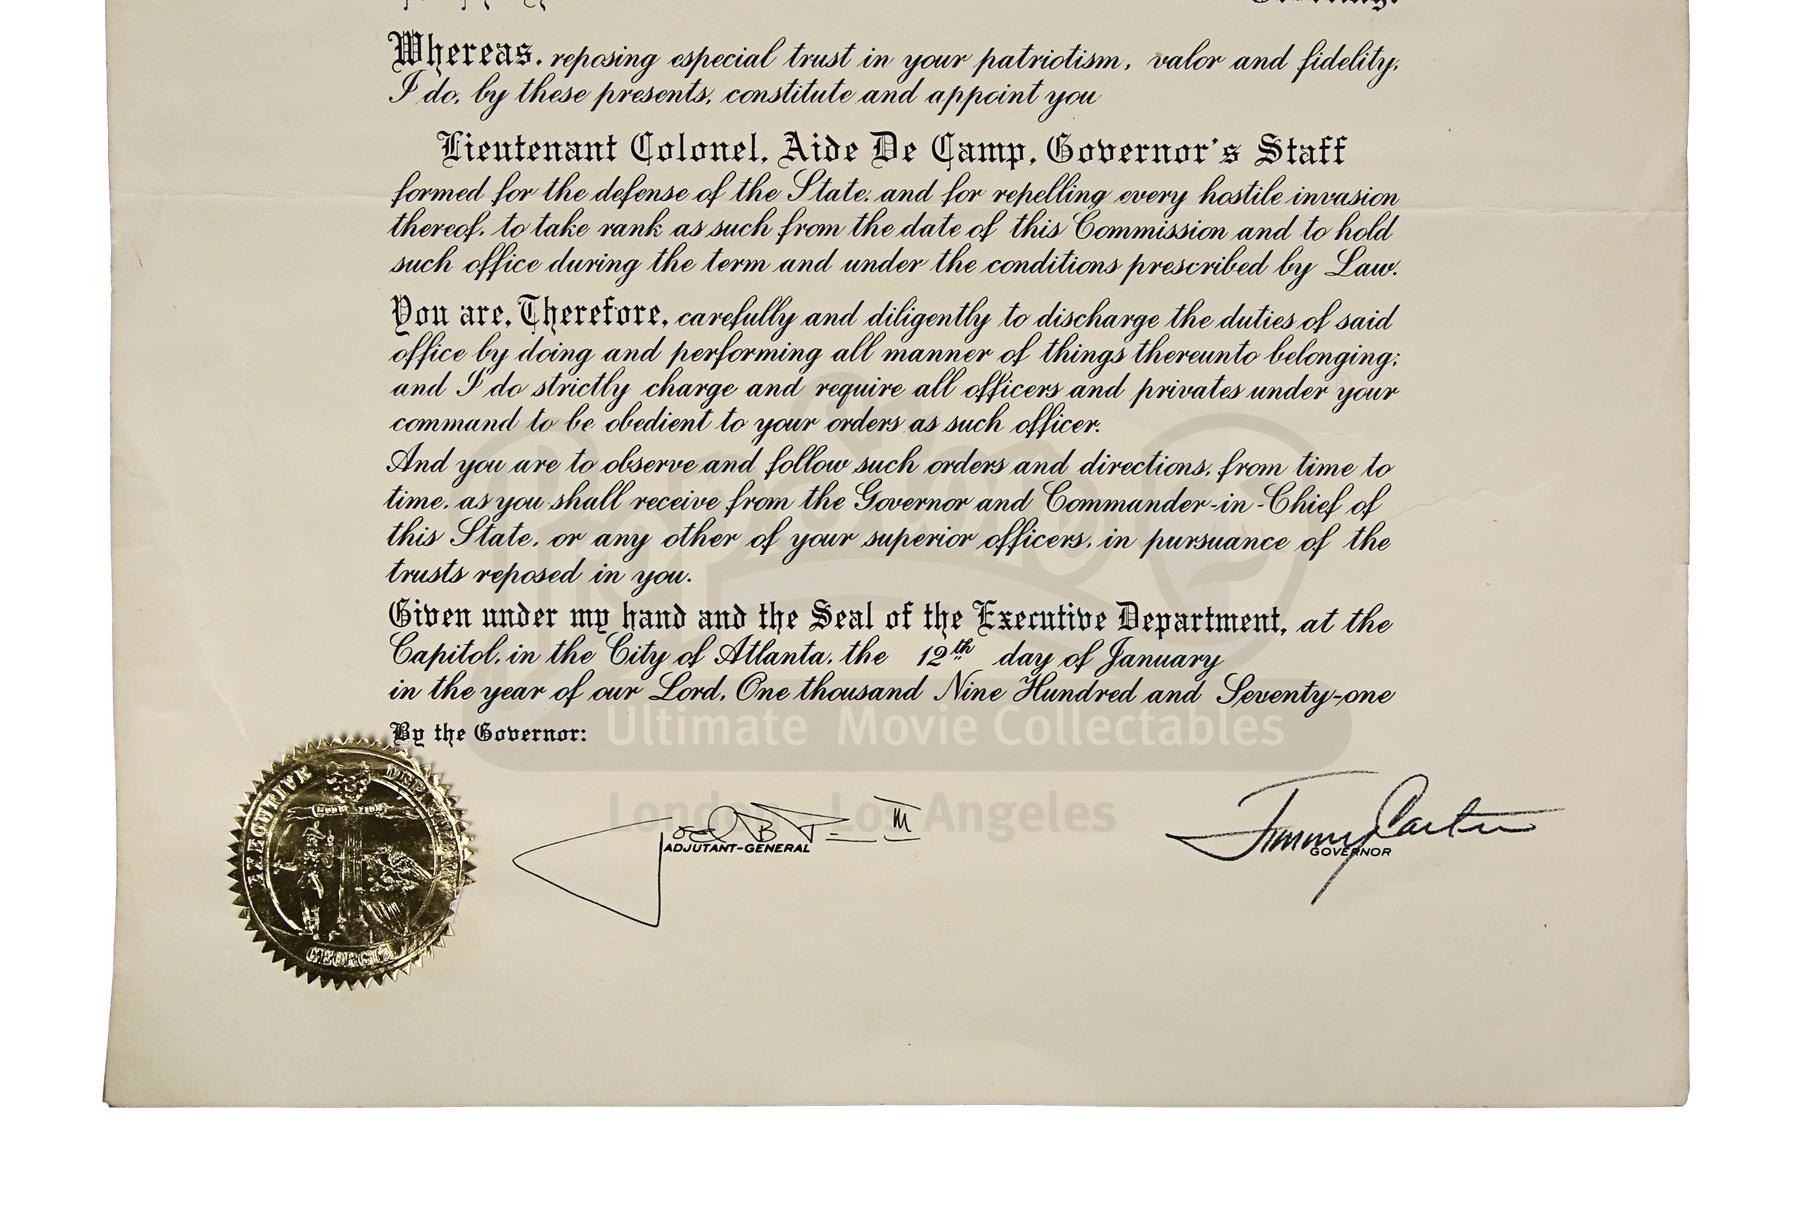 Greeting:
Whereas, reposing especial trust in your patriotism, valor and fidelity,
I do, by these presents, constitute and appoint you
Lieutenant Colonel, Aide De Camp, Governor's Staff
formed for the defense of the State, and for repelling every hostile invasion
thereof, to take rank as such from the date of this Commission and to hold
such office during the term and under the conditions prescribed by Law.
You are, Therefore, carefully and diligently to discharge the duties of said
office by doing and performing all manner of things thereunto belonging;
and I do strictly charge and require all officers and privates under your
command to be obedient to your orders as such officer.
And you are to observe and follow such orders and directions, from time to
time, as you shall receive from the Governor and Commander-in-Chief of
this State, or any other of your superior officers, in pursuance of the
trusts reposed in you.
Given under my hand and the Seal of the Executive Department, at the
Capitol, in the City of Atlanta, the 12th day of January
in the year of our Lord, One thousand Nine Hundred and Seventy-one
By the Governor:
Ultimate Movie Collectables
London - Los Angeles
Joel B. III
ADJUTANT-GENERAL
Jimmy Carter
GOVERNOR
EXECUTIVE DEPARTMENT
GEORGIA